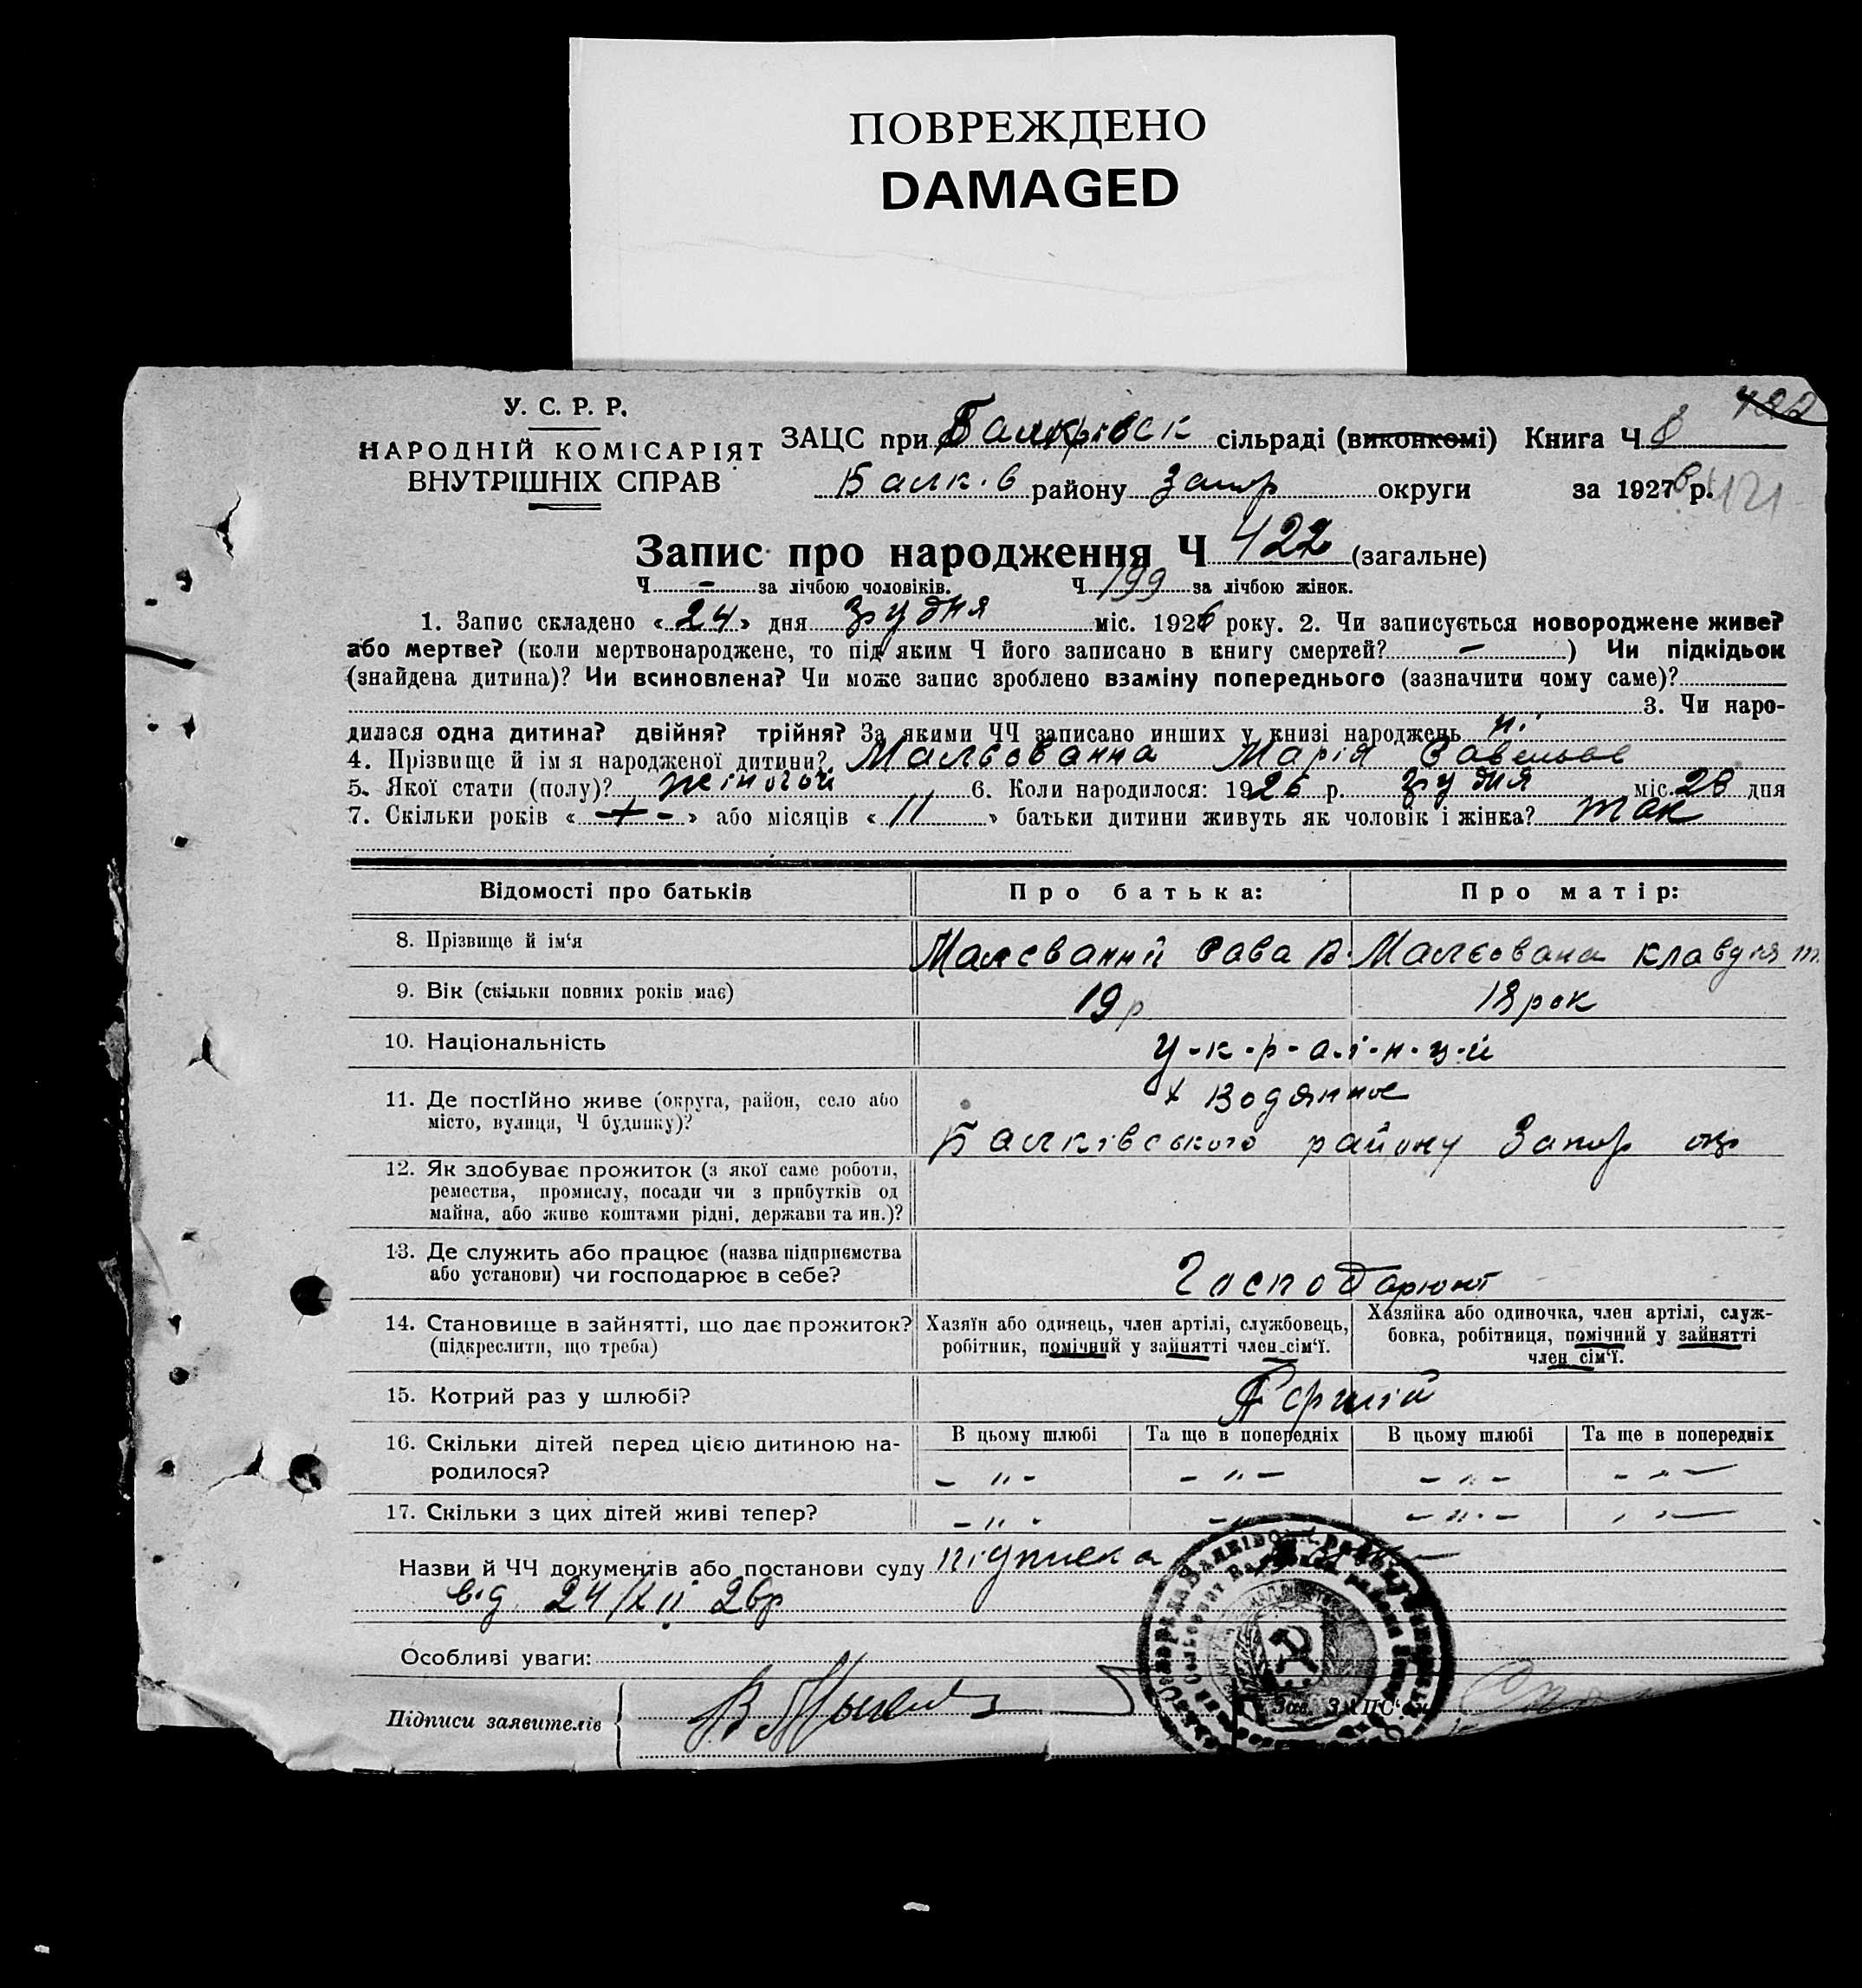 ПОВРЕЖДЕНО
DAMAGED
У. С. Р. Р.
НАРОДНІЙ КОМІСАРІЯТ
ВНУТРІШНІХ СПРАВ
422
ЗАЦС при Балківск сільраді (виконкомі) Книга Ч 8
Балк.в району Запор округи за 1926 р. 421
Запис про народження Ч 422 (загальне)
Ч - за лічбою чоловіків. Ч 199 за лічбою жінок.
1. Запис складено «24» дня грудня міс. 1926 року. 2. Чи записується новороджене живе?
або мертве? (коли мертвонароджене, то під яким Ч його записано в книгу смертей? - ) Чи підкідьок
(знайдена дитина)? Чи всиновлена? Чи може запис зроблено взаміну попереднього (зазначити чому саме)?
3. Чи наро-
дилася одна дитина? двійня? трійня? За якими ЧЧ записано инших у книзі народжень
4. Прізвище й ім я народженої дитини? Мальованна Марія Савельев
5. Якої стати (полу)? жіночой 6. Коли народилося: 1926 р. грудня міс. 20 дня
7. Скільки років « - » або місяців «11» батьки дитини живуть як чоловік і жінка? так
Відомості про батьків Про батька: Про матір:
8. Прізвище й ім‘я Малєванний Сава В. Малєована Клавдия Т.
9. Вік (скільки повних років має) 19 р 18 рок
10. Національність у-к-р-а-ї-н-ц-й
11. Де постійно живе (округа, район, село або
місто, вулиця, Ч будинку)?
х Водянное
Балківського району Запор окр
12. Як здобуває прожиток (з якої саме роботи,
ремества, промислу, посади чи з прибутків од
майна, або живе коштами рідні, держави та ин.)?
13. Де служить або працює (назва підприємства
або установи) чи господарює в себе?
Господарюют
14. Становище в зайнятті, що дає прожиток?
(підкреслити, що треба)
Хазяїн або одинець, член артілі, службовець,
робітник, помічний у зайнятті член сім‘ї.
Хазяйка або одиночка, член артілі, служ-
бовка, робітниця, помічний у зайнятті
член сім‘ї.
15. Котрий раз у шлюбі? Первий
16. Скільки дітей перед цією дитиною на-
родилося?
В цьому шлюбі Та ще в попередніх В цьому шлюбі Та ще в попередніх
- " - - " - - " - - " -
17. Скільки з цих дітей живі тепер? - " - - " - - " - - " -
Назви й ЧЧ документів або постанови суду підписка
від 24/XII 26р
Особливі уваги:
Підписи заявителів
Зав. ЗАЦС‘ом